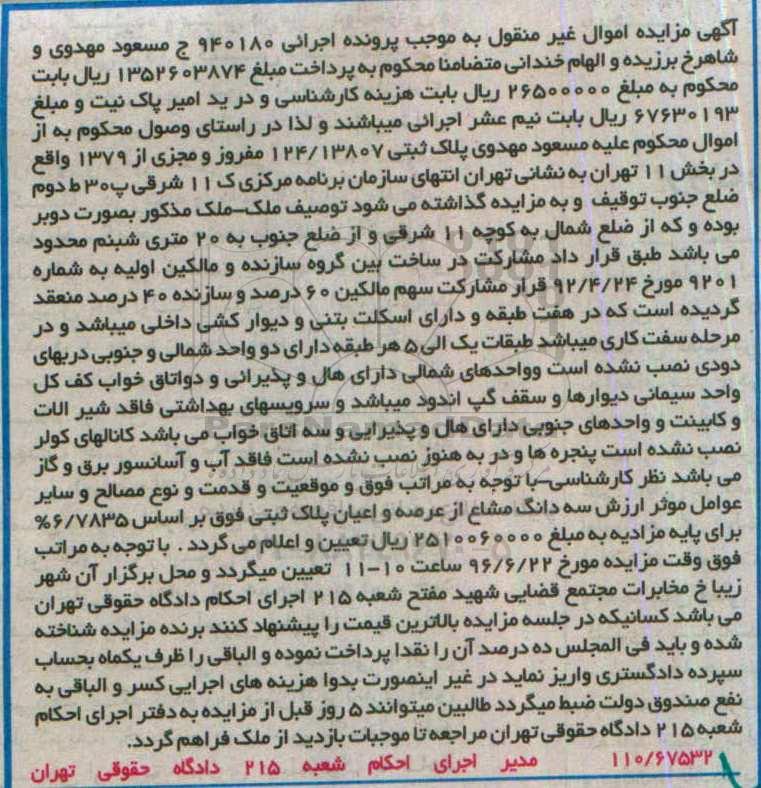 آگهی مزایده اموال غیر منقول به موجب پرونده اجرائی ۹۴۰۱۸۰ ج مسعود مهدوی و
شاهرخ برزیده و الهام خندانی متضامنا محکوم به پرداخت مبلغ ۱۳۵۲۶۰۳۸۷۴ ریال بابت
محکوم به مبلغ ۲۶۵۰۰۰۰۰ ریال بابت هزینه کارشناسی و در ید امیر پاک نیت و مبلغ
۶۷۶۳۰۱۹۳ ریال بابت نیم عشر اجرائی میباشند و لذا در راستای وصول محکوم به از
اموال محکوم علیه مسعود مهدوی پلاک ثبتی ۱۲۴/۱۳۸۰۷ مفروز و مجزی از ۱۳۷۹ واقع
در بخش ۱۱ تهران به نشانی تهران انتهای سازمان برنامه مرکزی ک ۱۱ شرقی پ۳۰ ط دوم
ضلع جنوب توقیف و به مزایده گذاشته می شود توصیف ملک-ملک مذکور بصورت دوبر
بوده و که از ضلع شمال به کوچه ۱۱ شرقی و از ضلع جنوب به ۲۰ متری شبنم محدود
می باشد طبق قرار داد مشارکت در ساخت بین گروه سازنده و مالکین اولیه به شماره
۹۲۰۱ مورخ ۹۲/۴/۲۴ قرار مشارکت سهم مالکین ۶۰ درصد و سازنده ۴۰ درصد منعقد
گردیده است که در هفت طبقه و دارای اسکلت بتنی و دیوار کشی داخلی میباشد و در
مرحله سفت کاری میباشد طبقات یک الی ۵ هر طبقه دارای دو واحد شمالی و جنوبی دربهای
دودی نصب نشده است وواحدهای شمالی دارای هال و پذیرائی و دواتاق خواب کف کل
واحد سیمانی دیوارها و سقف گپ اندود میباشد و سرویسهای بهداشتی فاقد شیر الات
و کابینت و واحدهای جنوبی دارای هال و پذیرایی و سه اتاق خواب می باشد کانالهای کولر
نصب نشده است پنجره ها و در به هنوز نصب نشده است فاقد آب و آسانسور برق و گاز
می باشد نظر کارشناسی-با توجه به مراتب فوق و موقعیت و قدمت و نوع مصالح و سایر
عوامل موثر ارزش سه دانگ مشاع از عرصه و اعیان پلاک ثبتی فوق بر اساس ۶/۷۸۳۵%
برای پایه مزادیه به مبلغ ۲۵۱۰۰۶۰۰۰۰ ریال تعیین و اعلام می گردد . با توجه به مراتب
فوق وقت مزایده مورخ ۹۶/۶/۲۲ ساعت ۱۰-۱۱ تعیین میگردد و محل برگزار آن شهر
زیبا خ مخابرات مجتمع قضایی شهید مفتح شعبه ۲۱۵ اجرای احکام دادگاه حقوقی تهران
می باشد کسانیکه در جلسه مزایده بالاترین قیمت را پیشنهاد کنند برنده مزایده شناخته
شده و باید فی المجلس ده درصد آن را نقدا پرداخت نموده و الباقی را ظرف یکماه بحساب
سپرده دادگستری واریز نماید در غیر اینصورت بدوا هزینه های اجرایی کسر و الباقی به
نفع صندوق دولت ضبط میگردد طالبین میتوانند ۵ روز قبل از مزایده به دفتر اجرای احکام
شعبه ۲۱۵ دادگاه حقوقی تهران مراجعه تا موجبات بازدید از ملک فراهم گردد.
۱۱۰/۶۷۵۳۲ مدیر اجرای احکام شعبه ۲۱۵ دادگاه حقوقی تهران